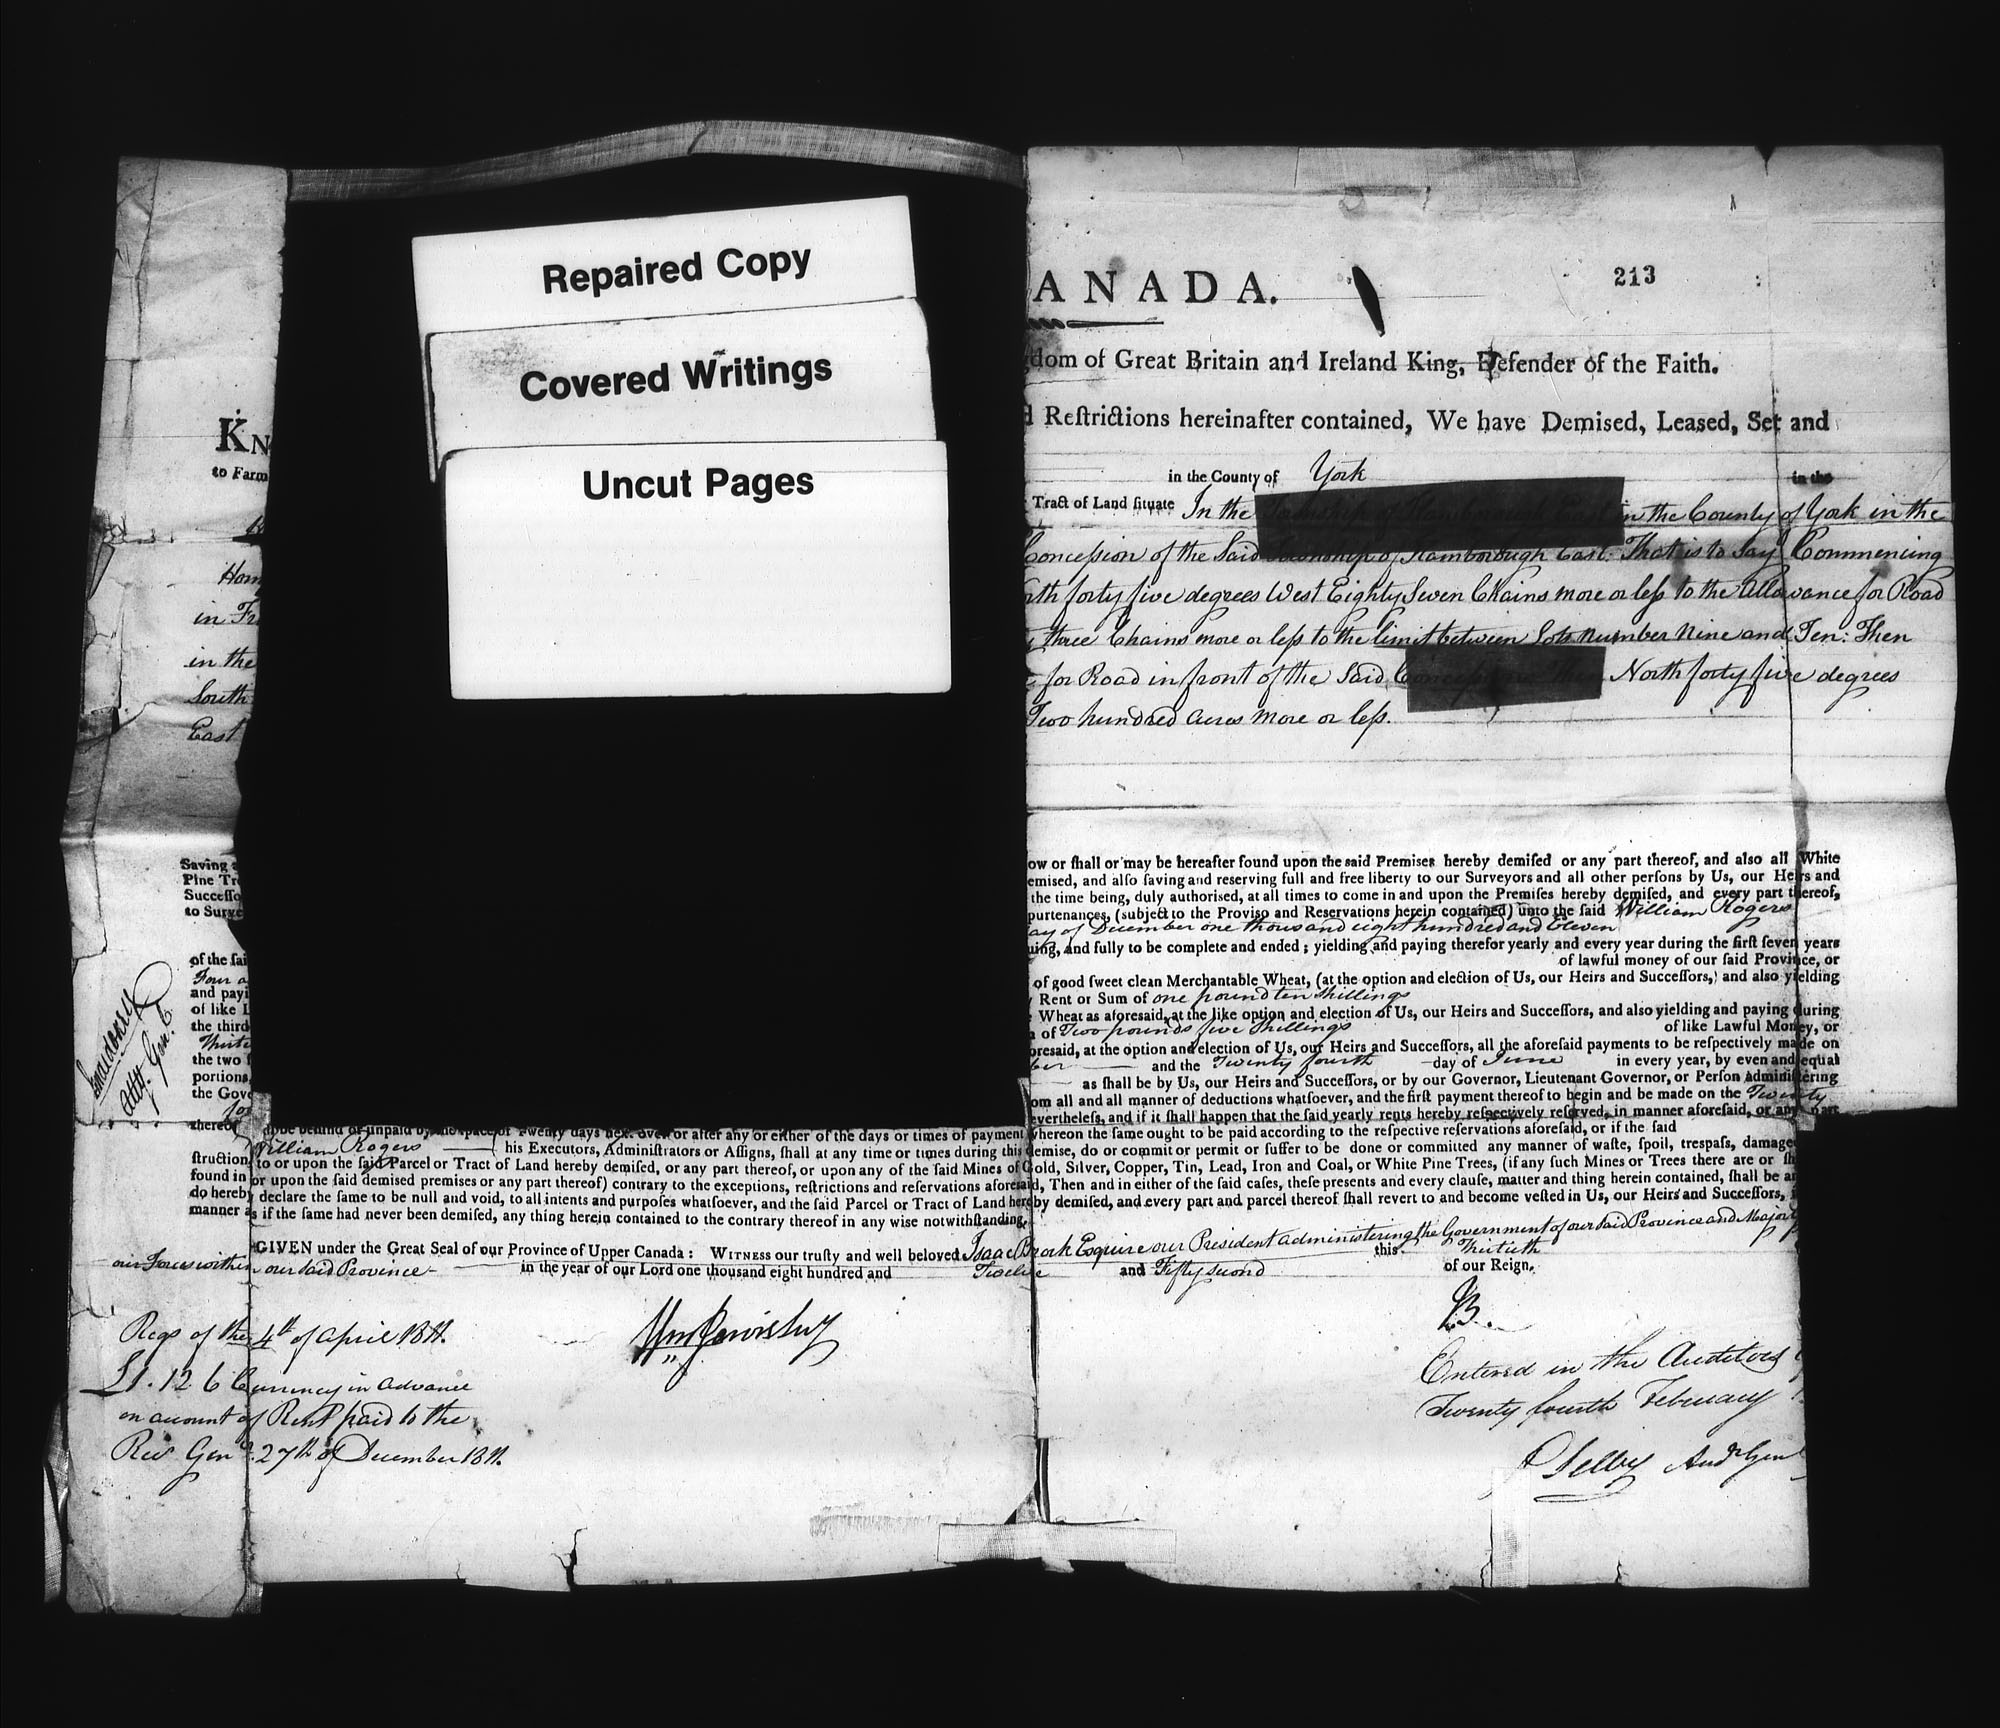 Repaired Copy
Covered Writings
Uncut Pages
213
ANADA.
dom of Great Britain and Ireland King, Defender of the Faith.
KN
d Reſtrictions hereinafter contained, We have Demised, Leased, Set and
to Farm
in the County of York in the
Tract of Land ſituate In the Township of Flamborough East in the County of York in the
Hom
Conceſsion of the Said Township of Flamborough East. That is to Say Commencing
in Fr
rth forty five degrees West Eighty Seven Chains more or leſs to the Allowance for Road
in the
three Chains more or leſs to the limit between Lots number Nine and Ten: Then
South
for Road in front of the Said Conceſsion Then North forty five degrees
East
Two hundred acres more or leſs.
Saving
ow or ſhall or may be hereafter found upon the said Premises hereby demiſed or any part thereof, and also all White
Pine Tre
emised, and alſo ſaving and reserving full and free liberty to our Surveyors and all other perſons by Us, our Heirs and
Succeſſo
the time being, duly authorised, at all times to come in and upon the Premiſes hereby demiſed, and every part thereof,
to Surve
purtenances, (subject to the Proviso and Reservations herein contained) unto the said William Rogers
ay of December one thousand eight hundred and Eleven
uing, and fully to be complete and ended ; yielding and paying therefor yearly and every year during the firſt ſeven years
of the ſai
of lawful money of our said Province, or
Four
of good ſweet clean Merchantable Wheat, (at the option and election of Us, our Heirs and Succeſſors,) and alſo yielding
and payi
Rent or Sum of one pound ten Shillings
of like L
Wheat as aforesaid, at the like option and election of Us, our Heirs and Succeſſors, and alſo yielding and paying during
the third
n of Two pounds five Shillings of like Lawful Money, or
Thirte
oresaid, at the option and election of Us, our Heirs and Succeſſors, all the aforeſaid payments to be reſpectively made on
the two
ber and the Twenty fourth day of June in every year, by even and equal
portions,
as ſhall be by Us, our Heirs and Succeſſors, or by our Governor, Lieutenant Governor, or Perſon Adminiſtering
the Gove
om all and all manner of deductions whatſoever, and the firſt payment thereof to begin and be made on the Twenty
for
evertheleſs, and if it ſhall happen that the said yearly rents hereby reſpectively reſerved, in manner aforeſaid, or any part
thereof to be behind or unpaid by the space of Twenty days next over or after any or either of the days or times of payment whereon the ſame ought to be paid according to the reſpective reſervations aforeſaid, or if the ſaid
William Rogers his Executors, Adminiſtrators or Aſſigns, ſhall at any time or times during this demise, do or commit or permit or ſuffer to be done or committed any manner of waſte, ſpoil, treſpaſs, damage
ſtruction, to or upon the ſaid Parcel or Tract of Land hereby demiſed, or any part thereof, or upon any of the ſaid Mines of Gold, Silver, Copper, Tin, Lead, Iron and Coal, or White Pine Trees, (if any ſuch Mines or Trees there are or ſh
found in or upon the ſaid demised premises or any part thereof) contrary to the exceptions, reſtrictions and reſervations aforesaid, Then and in either of the ſaid caſes, theſe presents and every clauſe, matter and thing herein contained, ſhall be an
do hereby declare the ſame to be null and void, to all intents and purpoſes whatſoever, and the ſaid Parcel or Tract of Land hereby demiſed, and every part and parcel thereof ſhall revert to and become veſted in Us, our Heirs and Succeſſors, i
manner as if the ſame had never been demiſed, any thing herein contained to the contrary thereof in any wise notwithſtanding.
GIVEN under the Great Seal of our Province of Upper Canada : WITNESS our truſty and well beloved Isaac Brock Esquire our President administering the Government of our Said Province and Major
our Forces within our Said Province this Thirtieth
in the year of our Lord one thousand eight hundred and Twelve and Fifty second of our Reign.
I.B.
Smidderell
Atty. Gen.
Rego of the 4th of April 1811.
Wm Jarvis Secy
£1.12 6 Currency in advance
on account of Rent paid to the
Rec Genl. 27th of December 1811.
Entered in the Auditors
Twenty fourth February
P Selby Audr Genl